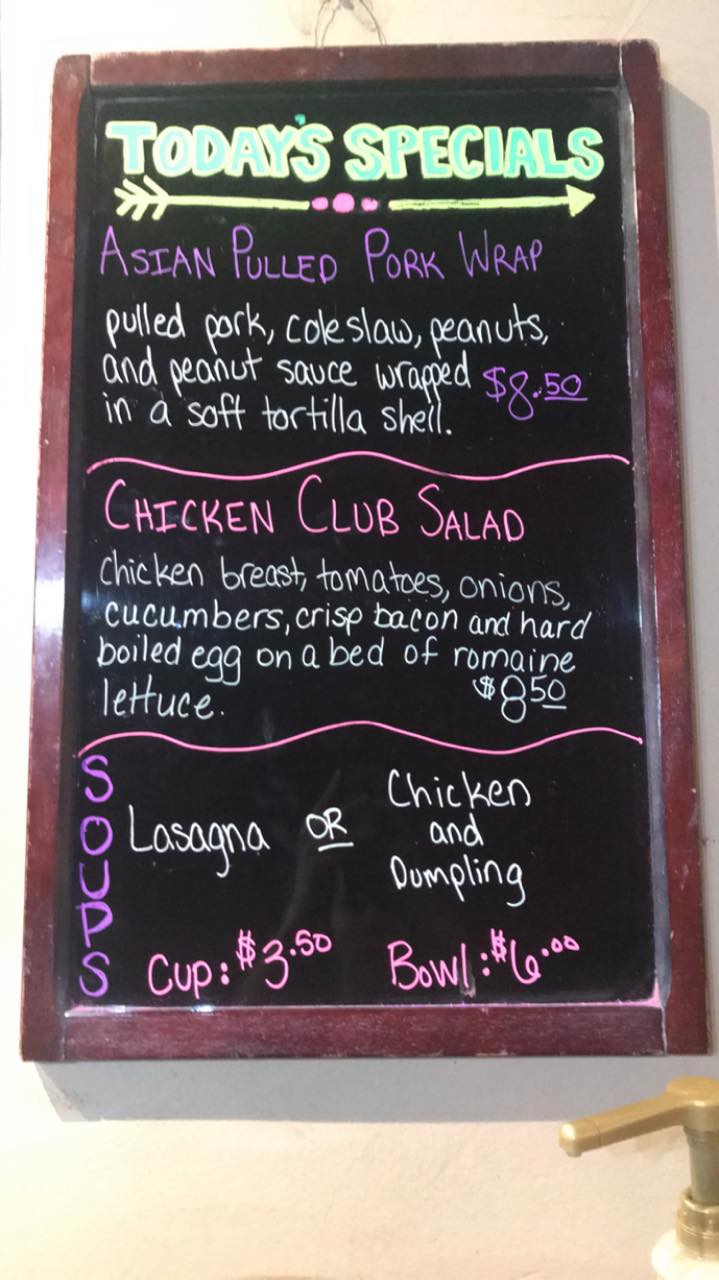 TODAY'S SPECIALS
ASIAN PULLED PORK WRAP
pulled pork, coleslaw, peanuts,
and peanut sauce wrapped $8.50
in a soft tortilla shell.
CHICKEN CLUB SALAD
chicken breast, tomatoes, onions,
cucumbers, crisp bacon and hard
boiled egg on a bed of romaine
lettuce. $8 50
SOUPS
Lasagna OR Chicken and Dumpling
Cup: $3.50 Bowl: $6.00